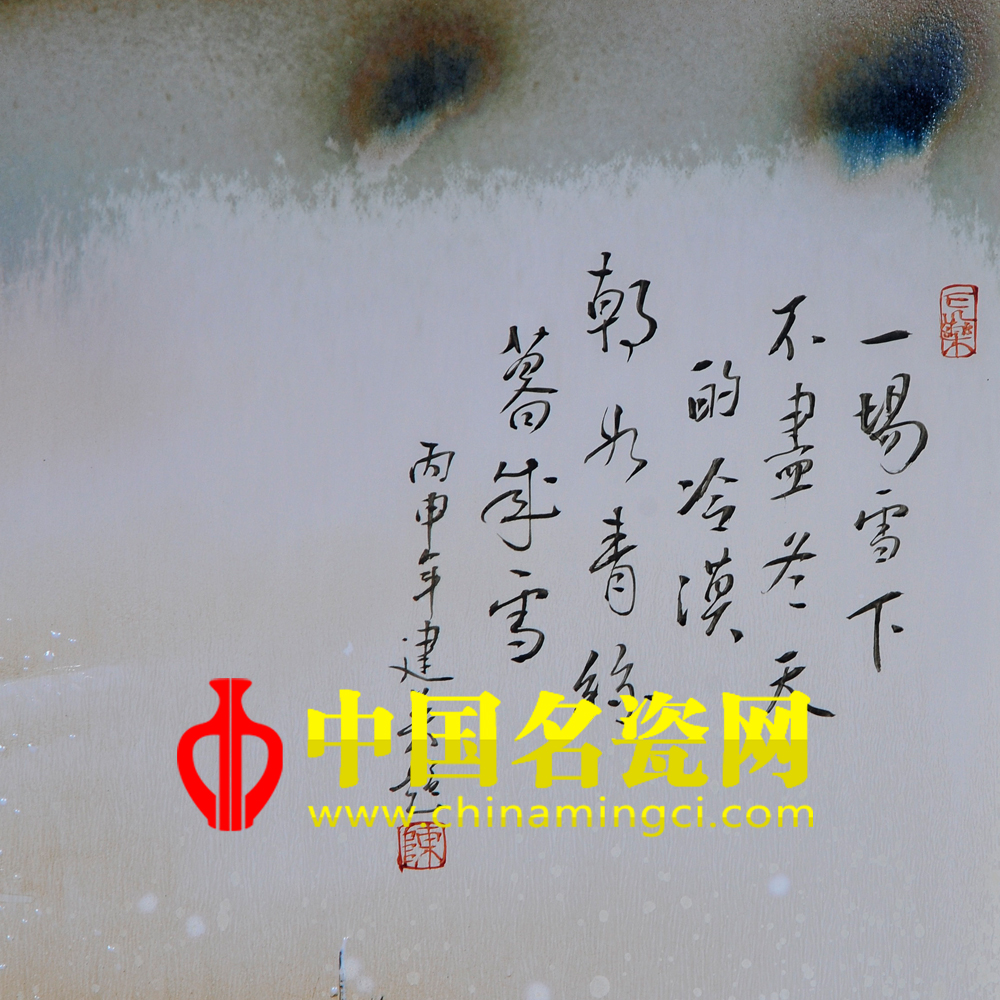 一場雪下
不盡冬天
的冷漠
朝如青絲
暮成雪
丙申年建
題
陳
中国名瓷网
www.chinamingci.com